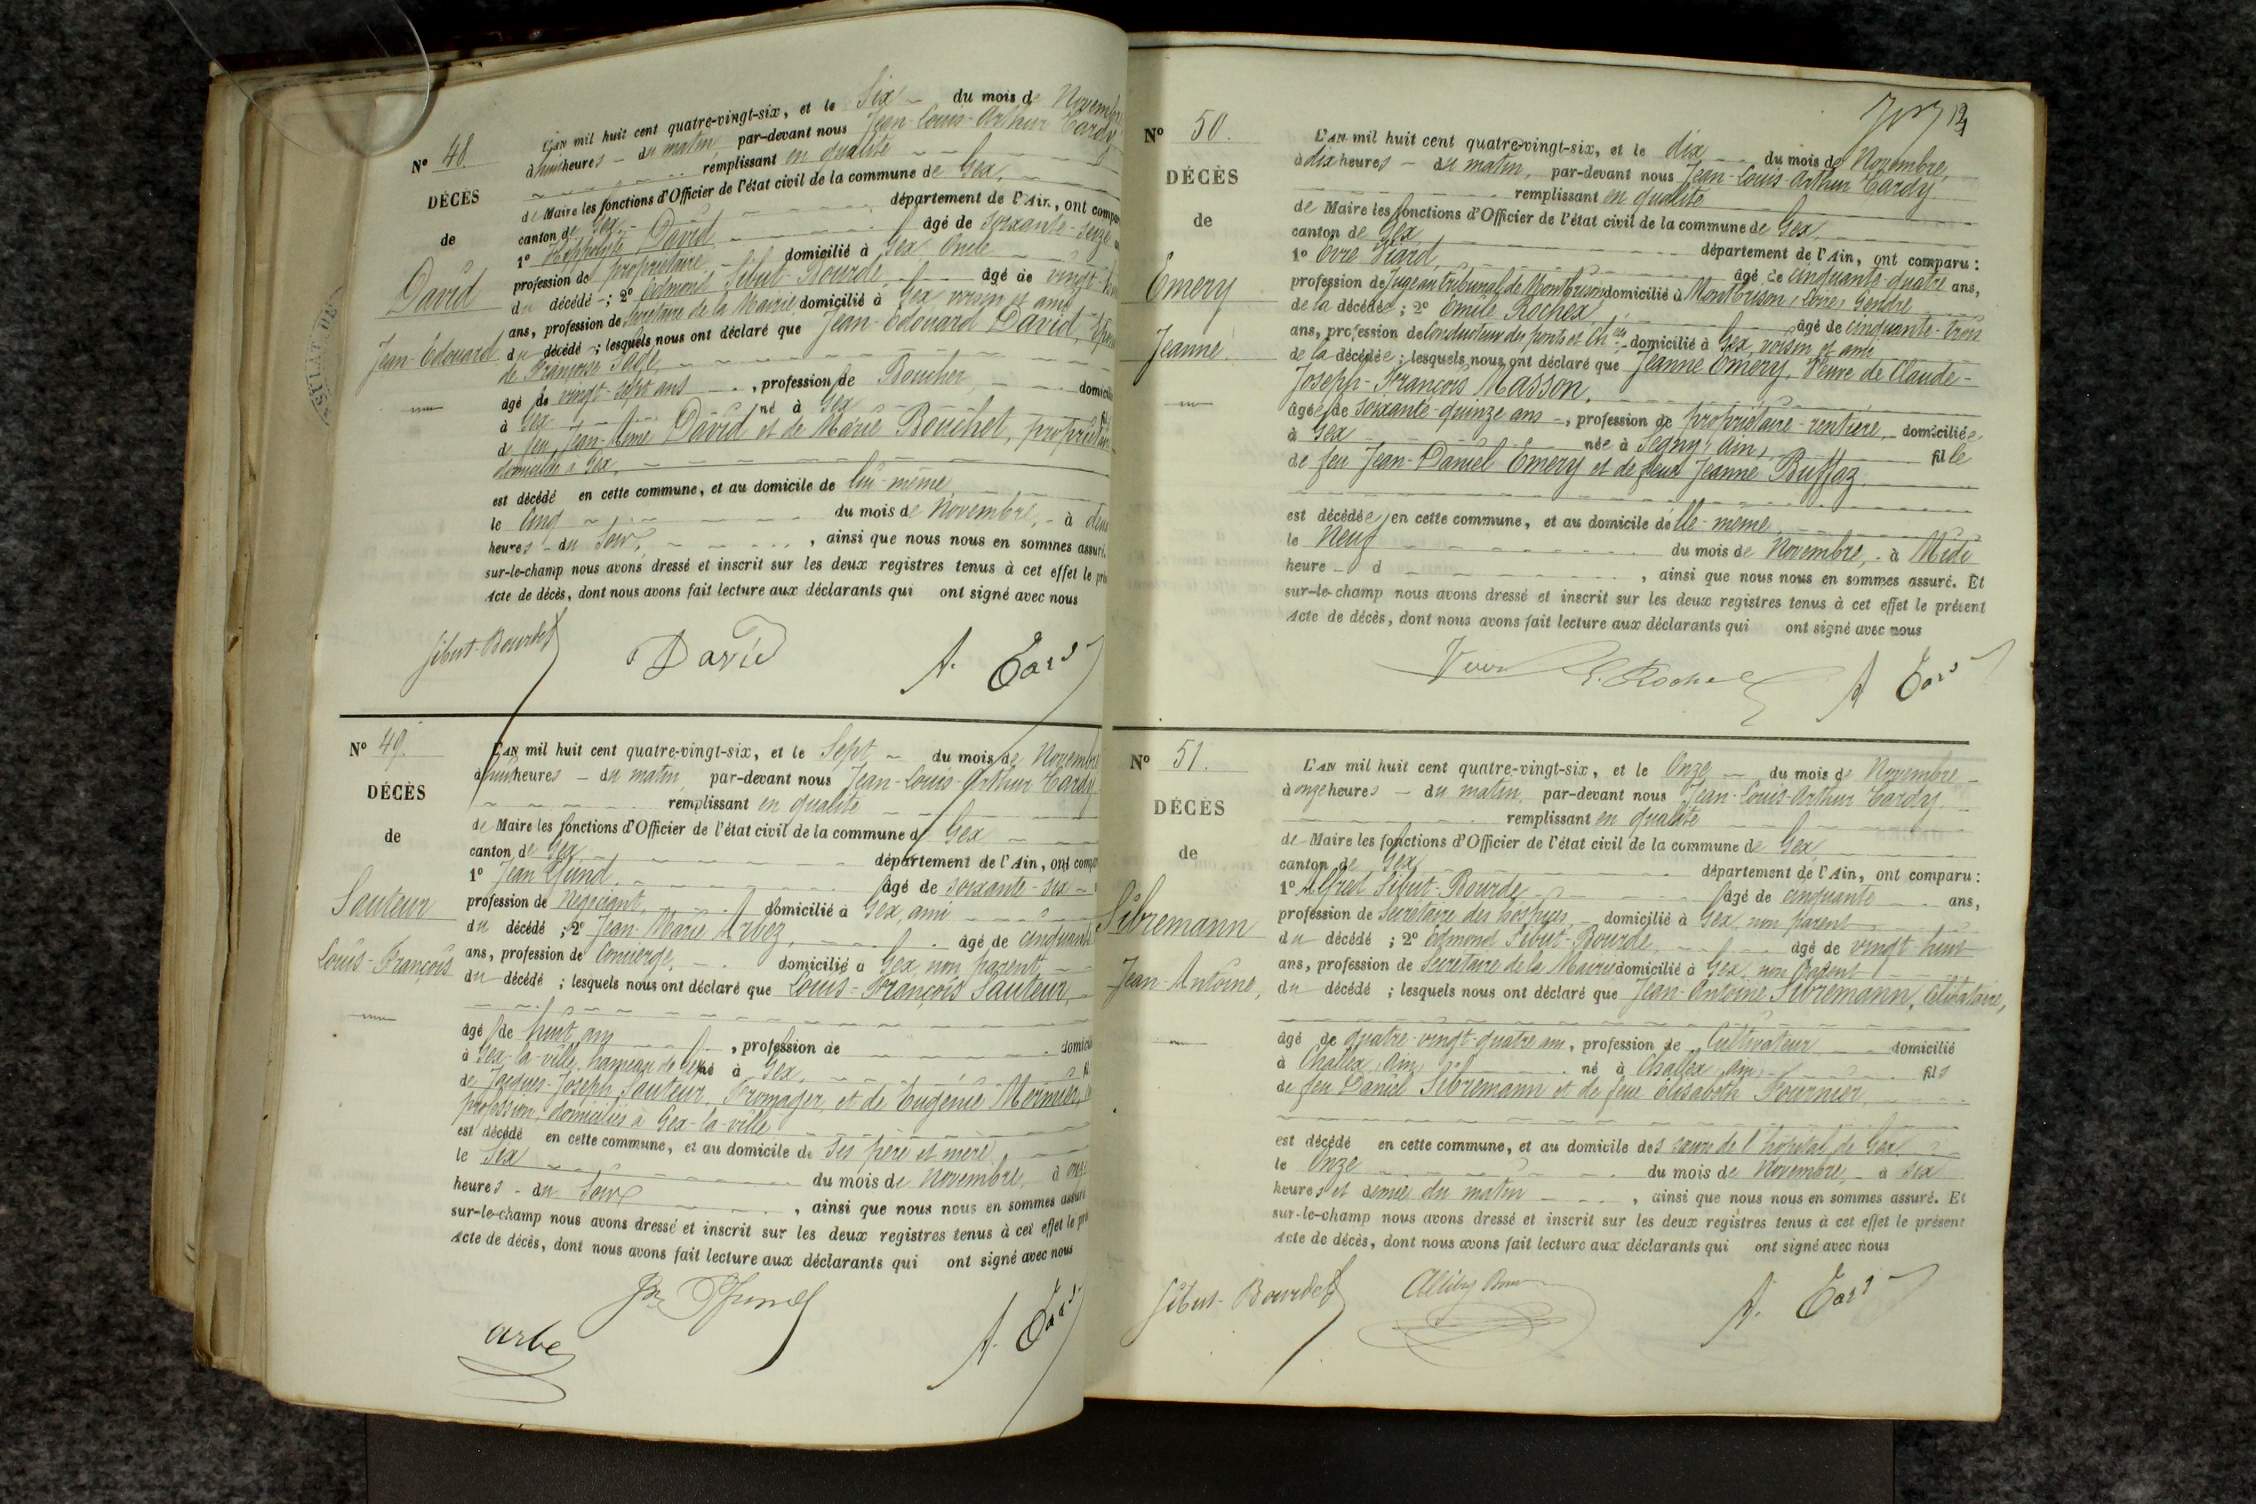 N° 48.
DÉCÈS
de
David
Jean-Edouard
L'AN mil huit cent quatre-vingt-six, et le Six du mois de Novembre
à huit heures du matin par-devant nous Jean-Louis-Arthur Tardy
remplissant en qualité
de Maire les fonctions d'Officier de l'état civil de la commune de Gex,
canton de Gex département de l'Ain, ont compa
1° Hippolyte David âgé de soixante-seize
profession de propriétaire domicilié à Gex Oncle
du décédé ; 2° Edmond Sibut-Bourde, âgé de vingt-huit
ans, profession de Secrétaire de la Mairie domicilié à Gex voisin et ami
du décédé ; lesquels nous ont déclaré que Jean-Edouard David,
de Françoise
âgé de vingt-sept ans, profession de Boucher domicilié
à Gex né à Gex fil
de feu Jean-Aimé David et de Marie Bouchet, propriétaire
domiciliée à Gex,
est décédé en cette commune, et au domicile de lui-même
le Cinq du mois de Novembre, à deux
heures du Soir, ainsi que nous nous en sommes assuré.
sur-le-champ nous avons dressé et inscrit sur les deux registres tenus à cet effet le pré
Acte de décès, dont nous avons fait lecture aux déclarants qui ont signé avec nous
Sibut-Bourde David A. Tardy
N° 49.
DÉCÈS
de
Sauteur
Louis-François
L'AN mil huit cent quatre-vingt-six, et le Sept du mois de Novembre
à huit heures du matin, par-devant nous Jean-Louis-Arthur Tardy
remplissant en qualité
de Maire les fonctions d'Officier de l'état civil de la commune de Gex
canton de Gex département de l'Ain, ont compa
1° Jean Pfund âgé de soixante-six
profession de Négociant, domicilié à Gex, ami
du décédé ; 2° Jean-Marie Arbez, âgé de cinquante
ans, profession de Concierge, domicilié à Gex, non parent
du décédé ; lesquels nous ont déclaré que Louis-François Sauteur,
âgé de huit ans, profession de domicilié
à Gex-la-ville, hameau de Gex né à Gex, fil
de Jacques-Joseph Sauteur, Fromager, et de Eugénie Mermier,
profession, domiciliés à Gex-la-ville
est décédé en cette commune, et au domicile de ses père et mère
le Six du mois de Novembre, à onze
heures du Soir, ainsi que nous nous en sommes assuré
sur-le-champ nous avons dressé et inscrit sur les deux registres tenus à cet effet le pré
Acte de décès, dont nous avons fait lecture aux déclarants qui ont signé avec nous
Jn Pfund
arbe A. Tardy
N° 50.
DÉCÈS
de
Emery
Jeanne
L'AN mil huit cent quatre-vingt-six, et le dix du mois de Novembre,
à dix heures du matin, par-devant nous Jean-Louis-Arthur Tardy
remplissant en qualité
de Maire les fonctions d'Officier de l'état civil de la commune de Gex,
canton de Gex département de l'Ain, ont comparu :
1° Ovre Viard, âgé de cinquante-quatre ans,
profession de Juge au tribunal de Montbrison domicilié à Montbrison, Loire, Gendre
de la décédée ; 2° Emile Rochex âgé de cinquante-trois
ans, profession de Conducteur des ponts et Ch. domicilié à Gex, voisin et ami
de la décédée ; lesquels nous ont déclaré que Jeanne Emery, Veuve de Claude-
Joseph-François Masson,
âgée de soixante-quinze ans, profession de propriétaire-rentière, domiciliée
à Gex née à Segny, Ain, fille
de feu Jean-Daniel Emery et de feue Jeanne Buffaz
est décédée en cette commune, et au domicile d'elle-même
le Neuf du mois de Novembre, à Midi
heure d , ainsi que nous nous en sommes assuré. Et
sur-le-champ nous avons dressé et inscrit sur les deux registres tenus à cet effet le présent
Acte de décès, dont nous avons fait lecture aux déclarants qui ont signé avec nous
E. Rochex A. Tardy
N° 51.
DÉCÈS
de
Sibremann
Jean-Antoine,
L'AN mil huit cent quatre-vingt-six, et le Onze du mois de Novembre
à onze heures du matin, par-devant nous Jean-Louis-Arthur Tardy
remplissant en qualité
de Maire les fonctions d'Officier de l'état civil de la commune de Gex,
canton de Gex département de l'Ain, ont comparu :
1° Alfred Sibut-Bourde âgé de cinquante ans,
profession de Secrétaire des hospices, domicilié à Gex, non parent
du décédé ; 2° Edmond Sibut-Bourde, âgé de vingt huit
ans, profession de Secrétaire de la Mairie domicilié à Gex, non parent
du décédé ; lesquels nous ont déclaré que Jean-Antoine Sibremann, Célibataire,
âgé de quatre-vingt-quatre ans, profession de Cultivateur domicilié
à Challex, Ain, né à Challex, Ain, fils
de feu Daniel Sibremann et de feue Elisabeth Fournier,
est décédé en cette commune, et au domicile des sœurs de l'hôpital de Gex
le Onze du mois de Novembre, à six
heures et demie du matin, ainsi que nous nous en sommes assuré. Et
sur-le-champ nous avons dressé et inscrit sur les deux registres tenus à cet effet le présent
Acte de décès, dont nous avons fait lecture aux déclarants qui ont signé avec nous
Sibut-Bourde A. Tardy